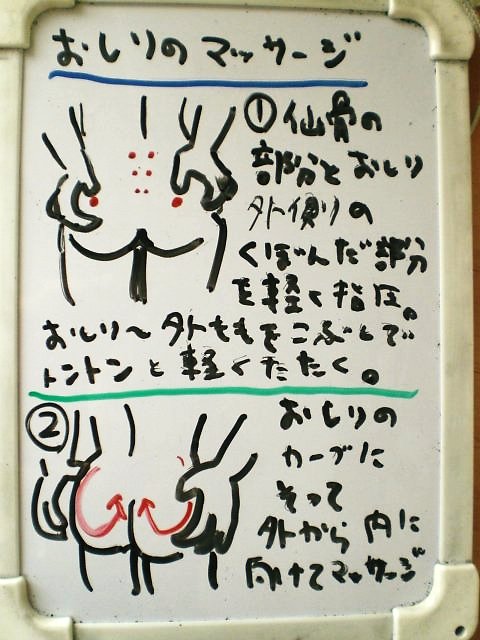 おしりのマッサージ
①仙骨の
部分とおしり
外側りの
くぼんだ部分
を軽く指圧。
おしり〜外ももをこぶしで
トントンと軽くたたく。
②
おしりの
カーブに
そって
外から内に
向けてマッサージ